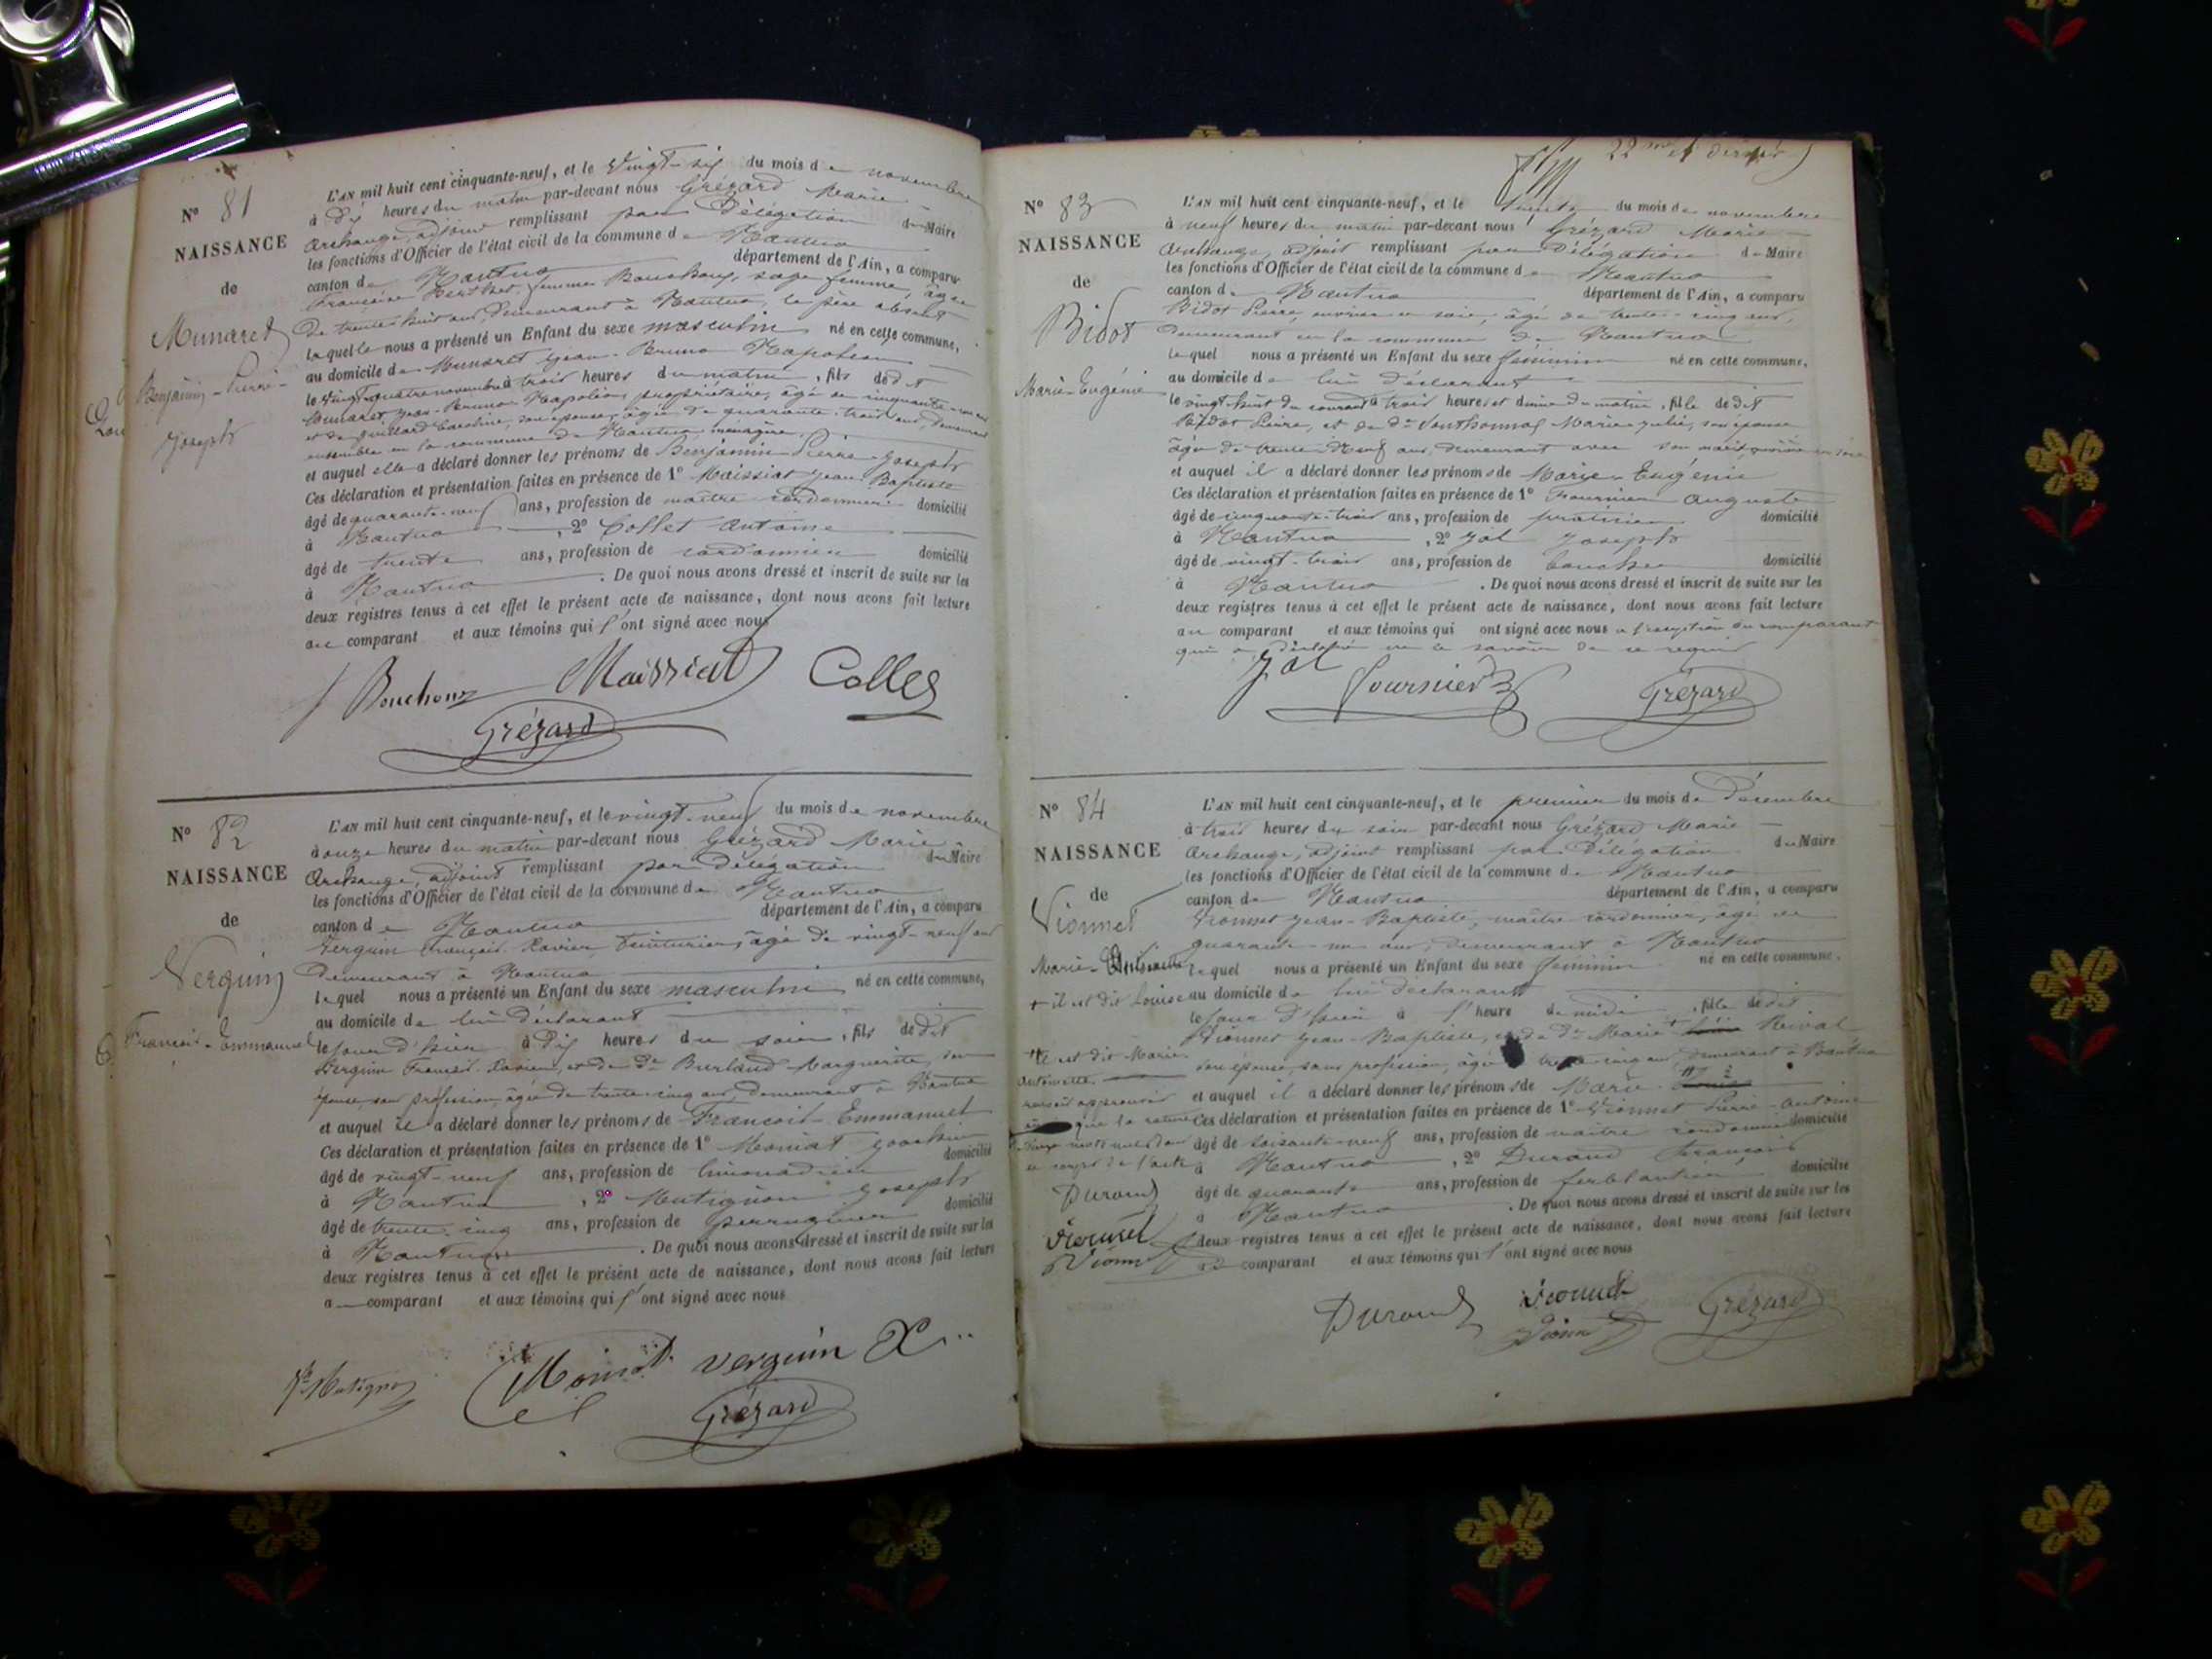 N° 81
NAISSANCE
de
Munaret
Benjamin-Pierre-
Joseph
L'AN mil huit cent cinquante-neuf, et le Vingt-six du mois de novembre
à dix heures du matin par-devant nous Grézard Marie
Archange, adjoint remplissant par Délégation du Maire
les fonctions d'Officier de l'état civil de la commune de Nantua
canton de Nantua département de l'Ain, a comparu
Françoise Berthet femme Bouchoux, sage femme, âgée
de trente-huit ans, demeurant à Nantua, le père absent
laquelle nous a présenté un Enfant du sexe masculin né en cette commune,
au domicile de Munaret Jean-Bruno Napoléon
le vingt-quatre novembre à trois heures du matin, fils dudit
Munaret Jean-Bruno Napoléon, propriétaire, âgé de cinquante
et de Guillard Caroline, son épouse, âgée de quarante-trois ans, demeurant
ensemble en la commune de Nantua, ménagère.
et auquel elle a déclaré donner les prénoms de Benjamin-Pierre-Joseph
Ces déclaration et présentation faites en présence de 1° Maissiat Jean-Baptiste
âgé de quarante-neuf ans, profession de maître cordonnier domicilié
à Nantua, 2° Collet Antoine
âgé de trente ans, profession de cordonnier domicilié
à Nantua. De quoi nous avons dressé et inscrit de suite sur les
deux registres tenus à cet effet le présent acte de naissance, dont nous avons fait lecture
au comparant et aux témoins qui l'ont signé avec nous
Bouchoux Maissiat Collet
Grézard
N° 82
NAISSANCE
de
Verguin
François-Emmanuel
L'AN mil huit cent cinquante-neuf, et le vingt-neuf du mois de novembre
à onze heures du matin par-devant nous Grézard Marie
Archange, adjoint remplissant par Délégation du Maire
les fonctions d'Officier de l'état civil de la commune de Nantua
canton de Nantua département de l'Ain, a comparu
Verguin François Xavier, teinturier, âgé de vingt-neuf ans
demeurant à Nantua
lequel nous a présenté un Enfant du sexe masculin né en cette commune,
au domicile de lui déclarant
le jour d'hier à dix heures du soir, fils dudit
Verguin François Xavier, et de De Burland Marguerite, son
épouse, sans profession, âgée de trente-cinq ans, demeurant à Nantua
et auquel il a déclaré donner les prénoms de François-Emmanuel
Ces déclaration et présentation faites en présence de 1° Moniat Joachim
âgé de vingt-neuf ans, profession de limonadier domicilié
à Nantua, 2° Matignon Joseph
âgé de trente-cinq ans, profession de perruquier domicilié
à Nantua. De quoi nous avons dressé et inscrit de suite sur les
deux registres tenus à cet effet le présent acte de naissance, dont nous avons fait lecture
au comparant et aux témoins qui l'ont signé avec nous
Matignon Moniat Verguin X
Grézard
22me et dernier
N° 83
NAISSANCE
de
Bidot
Marie-Eugénie
L'AN mil huit cent cinquante-neuf, et le trente du mois de novembre
à neuf heures du matin par-devant nous Grézard Marie
Archange, adjoint remplissant par Délégation du Maire
les fonctions d'Officier de l'état civil de la commune de Nantua
canton de Nantua département de l'Ain, a comparu
Bidot Pierre, ouvrier en soie, âgé de trente-cinq ans,
demeurant en la commune de Nantua
lequel nous a présenté un Enfant du sexe féminin né en cette commune,
au domicile de lui déclarant
le vingt-huit du courant à trois heures et demie du matin, fille dudit
Bidot Pierre, et de De Marie-Julie, son épouse
âgée de trente-neuf ans, demeurant avec son mari, ouvrière en soie
et auquel il a déclaré donner les prénoms de Marie-Eugénie
Ces déclaration et présentation faites en présence de 1° Fournier Auguste
âgé de cinquante-trois ans, profession de praticien domicilié
à Nantua, 2° Jal Joseph
âgé de vingt-trois ans, profession de boucher domicilié
à Nantua. De quoi nous avons dressé et inscrit de suite sur les
deux registres tenus à cet effet le présent acte de naissance, dont nous avons fait lecture
au comparant et aux témoins qui ont signé avec nous à l'exception du comparant
qui a déclaré ne le savoir de ce requis
Jal Fournier Grézard
N° 84
NAISSANCE
de
Vionnet
Marie-
+ il est dit Louise
il est dit Marie
Antoinette
renvoi approuvé
que la rature
mots nuls dans
le corps de l'acte
Durand
Vionnet
Vionnet
L'AN mil huit cent cinquante-neuf, et le premier du mois de Décembre
à trois heures du soir par-devant nous Grézard Marie
Archange, adjoint remplissant par Délégation du Maire
les fonctions d'Officier de l'état civil de la commune de Nantua
canton de Nantua département de l'Ain, a comparu
Vionnet Jean-Baptiste, maître cordonnier, âgé de
quarante-un ans, demeurant à Nantua
lequel nous a présenté un Enfant du sexe féminin né en cette commune,
au domicile de lui déclarant
le jour d'hier à l'heure de midi, fille dudit
Vionnet Jean-Baptiste, et de De Marie Reival
son épouse, sans profession, âgée trente-cinq ans demeurant à Nantua
et auquel il a déclaré donner les prénoms de Marie Louise
Ces déclaration et présentation faites en présence de 1° Vionnet Pierre-Antoine
âgé de soixante-neuf ans, profession de maître cordonnier domicilié
à Nantua, 2° Durand François
âgé de quarante ans, profession de ferblantier domicilié
à Nantua. De quoi nous avons dressé et inscrit de suite sur les
deux registres tenus à cet effet le présent acte de naissance, dont nous avons fait lecture
au comparant et aux témoins qui l'ont signé avec nous
Durand Vionnet Grézard
Vionnet